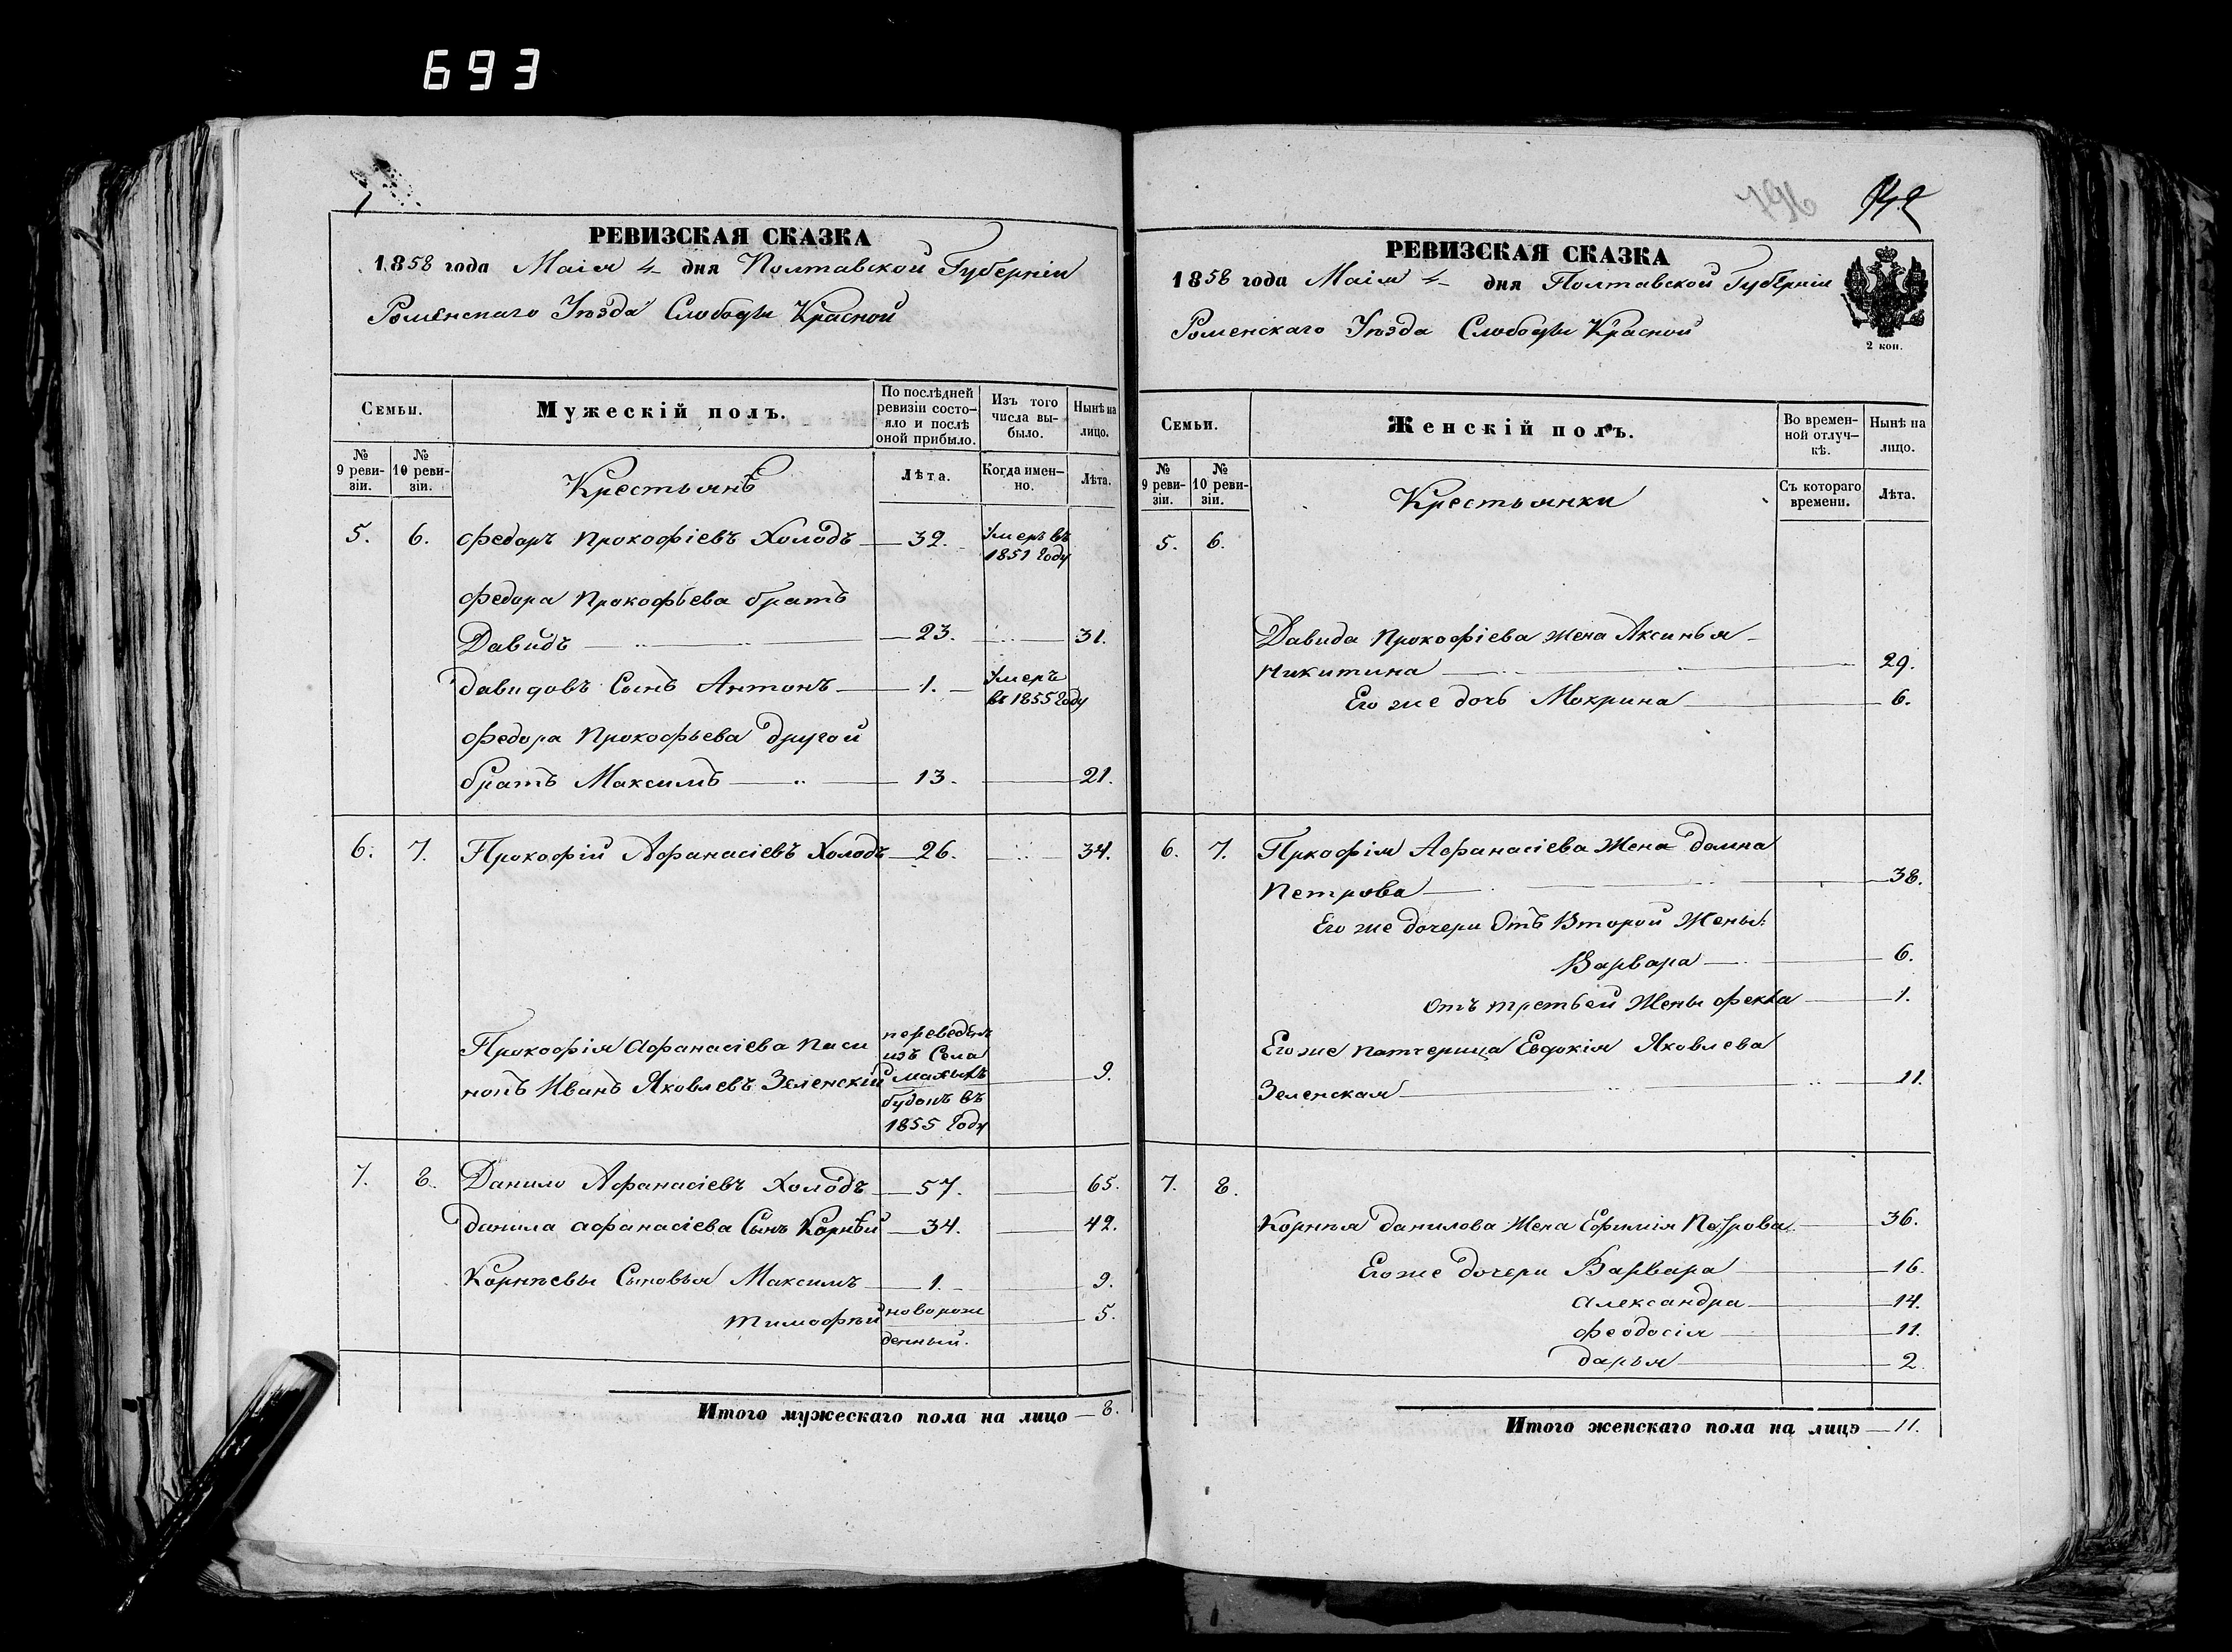 693
РЕВИЗСКАЯ СКАЗКА
1858 года Маія 4 дня Полтавской Губерніи
Роменскаго Уѣзда Слободы Красной
Семьи.
Мужескій полъ.
По послѣдней ревизіи состо-
яло и послѣ
оной прибыло.
Изъ того
числа вы-
было.
Нынѣ на
лицо.
№
9 реви-
зіи.
№
10 реви-
зіи.
Крестьянѣ
Лѣта.
Когда имен-
но.
Лѣта.
5. 6. Федоръ Прокофіевъ Холодъ 32. Умеръ въ
1851 Году
Федора Прокофьева братъ
Давидъ 23. 31.
Давидовъ Сынъ Антонъ 1. Умеръ
въ 1855 Году
Федора Прокофьева другой
братъ Максимъ 13. 21.
6. 7. Прокофій Афанасіевъ Холодъ 26. 34.
Прокофія Афанасіева паси
нокъ Иванъ Яковлевъ Зеленскій 9.
переведенъ
изъ Села
будокъ въ
1855 Году
7. 8. Данило Афанасіевъ Холодъ 57. 65.
Данила Афанасіева Сынъ Корнѣй 34. 42.
Корнѣевы Сыновья Максимъ 1. 9.
Тимофѣй новорож
денный. 5.
Итого мужескаго пола на лицо 8.
796 742
РЕВИЗСКАЯ СКАЗКА
1858 года Маія 4 дня Полтавской Губерніи
Роменскаго Уѣзда Слободы Красной
2 коп.
Семьи.
Женскій полъ.
Во времен-
ной отлуч-
кѣ.
Нынѣ на
лицо.
№
9 реви-
зіи.
№
10 реви-
зіи.
Крестьянки
Съ котораго
времени.
Лѣта.
5. 6.
Давида Прокофіева жена Аксинья
Никитина 29.
Его же дочь Мокрина 6.
6. 7. Пркофія Афанасіева Жена Домна
Петрова 38.
Его же дочери Отъ Второй Жены:
Варвара 6.
Отъ третьей Жены Фекла 1.
Его же патчерица Евдокія Яковлева
Зеленская 11.
7. 8.
Корнѣя Данилова Жена Ефимія Петрова 36.
Его же дочери Варвара 16.
Александра 14.
Феодосія 11.
Дарья 2.
Итого женскаго пола на лицо 11.